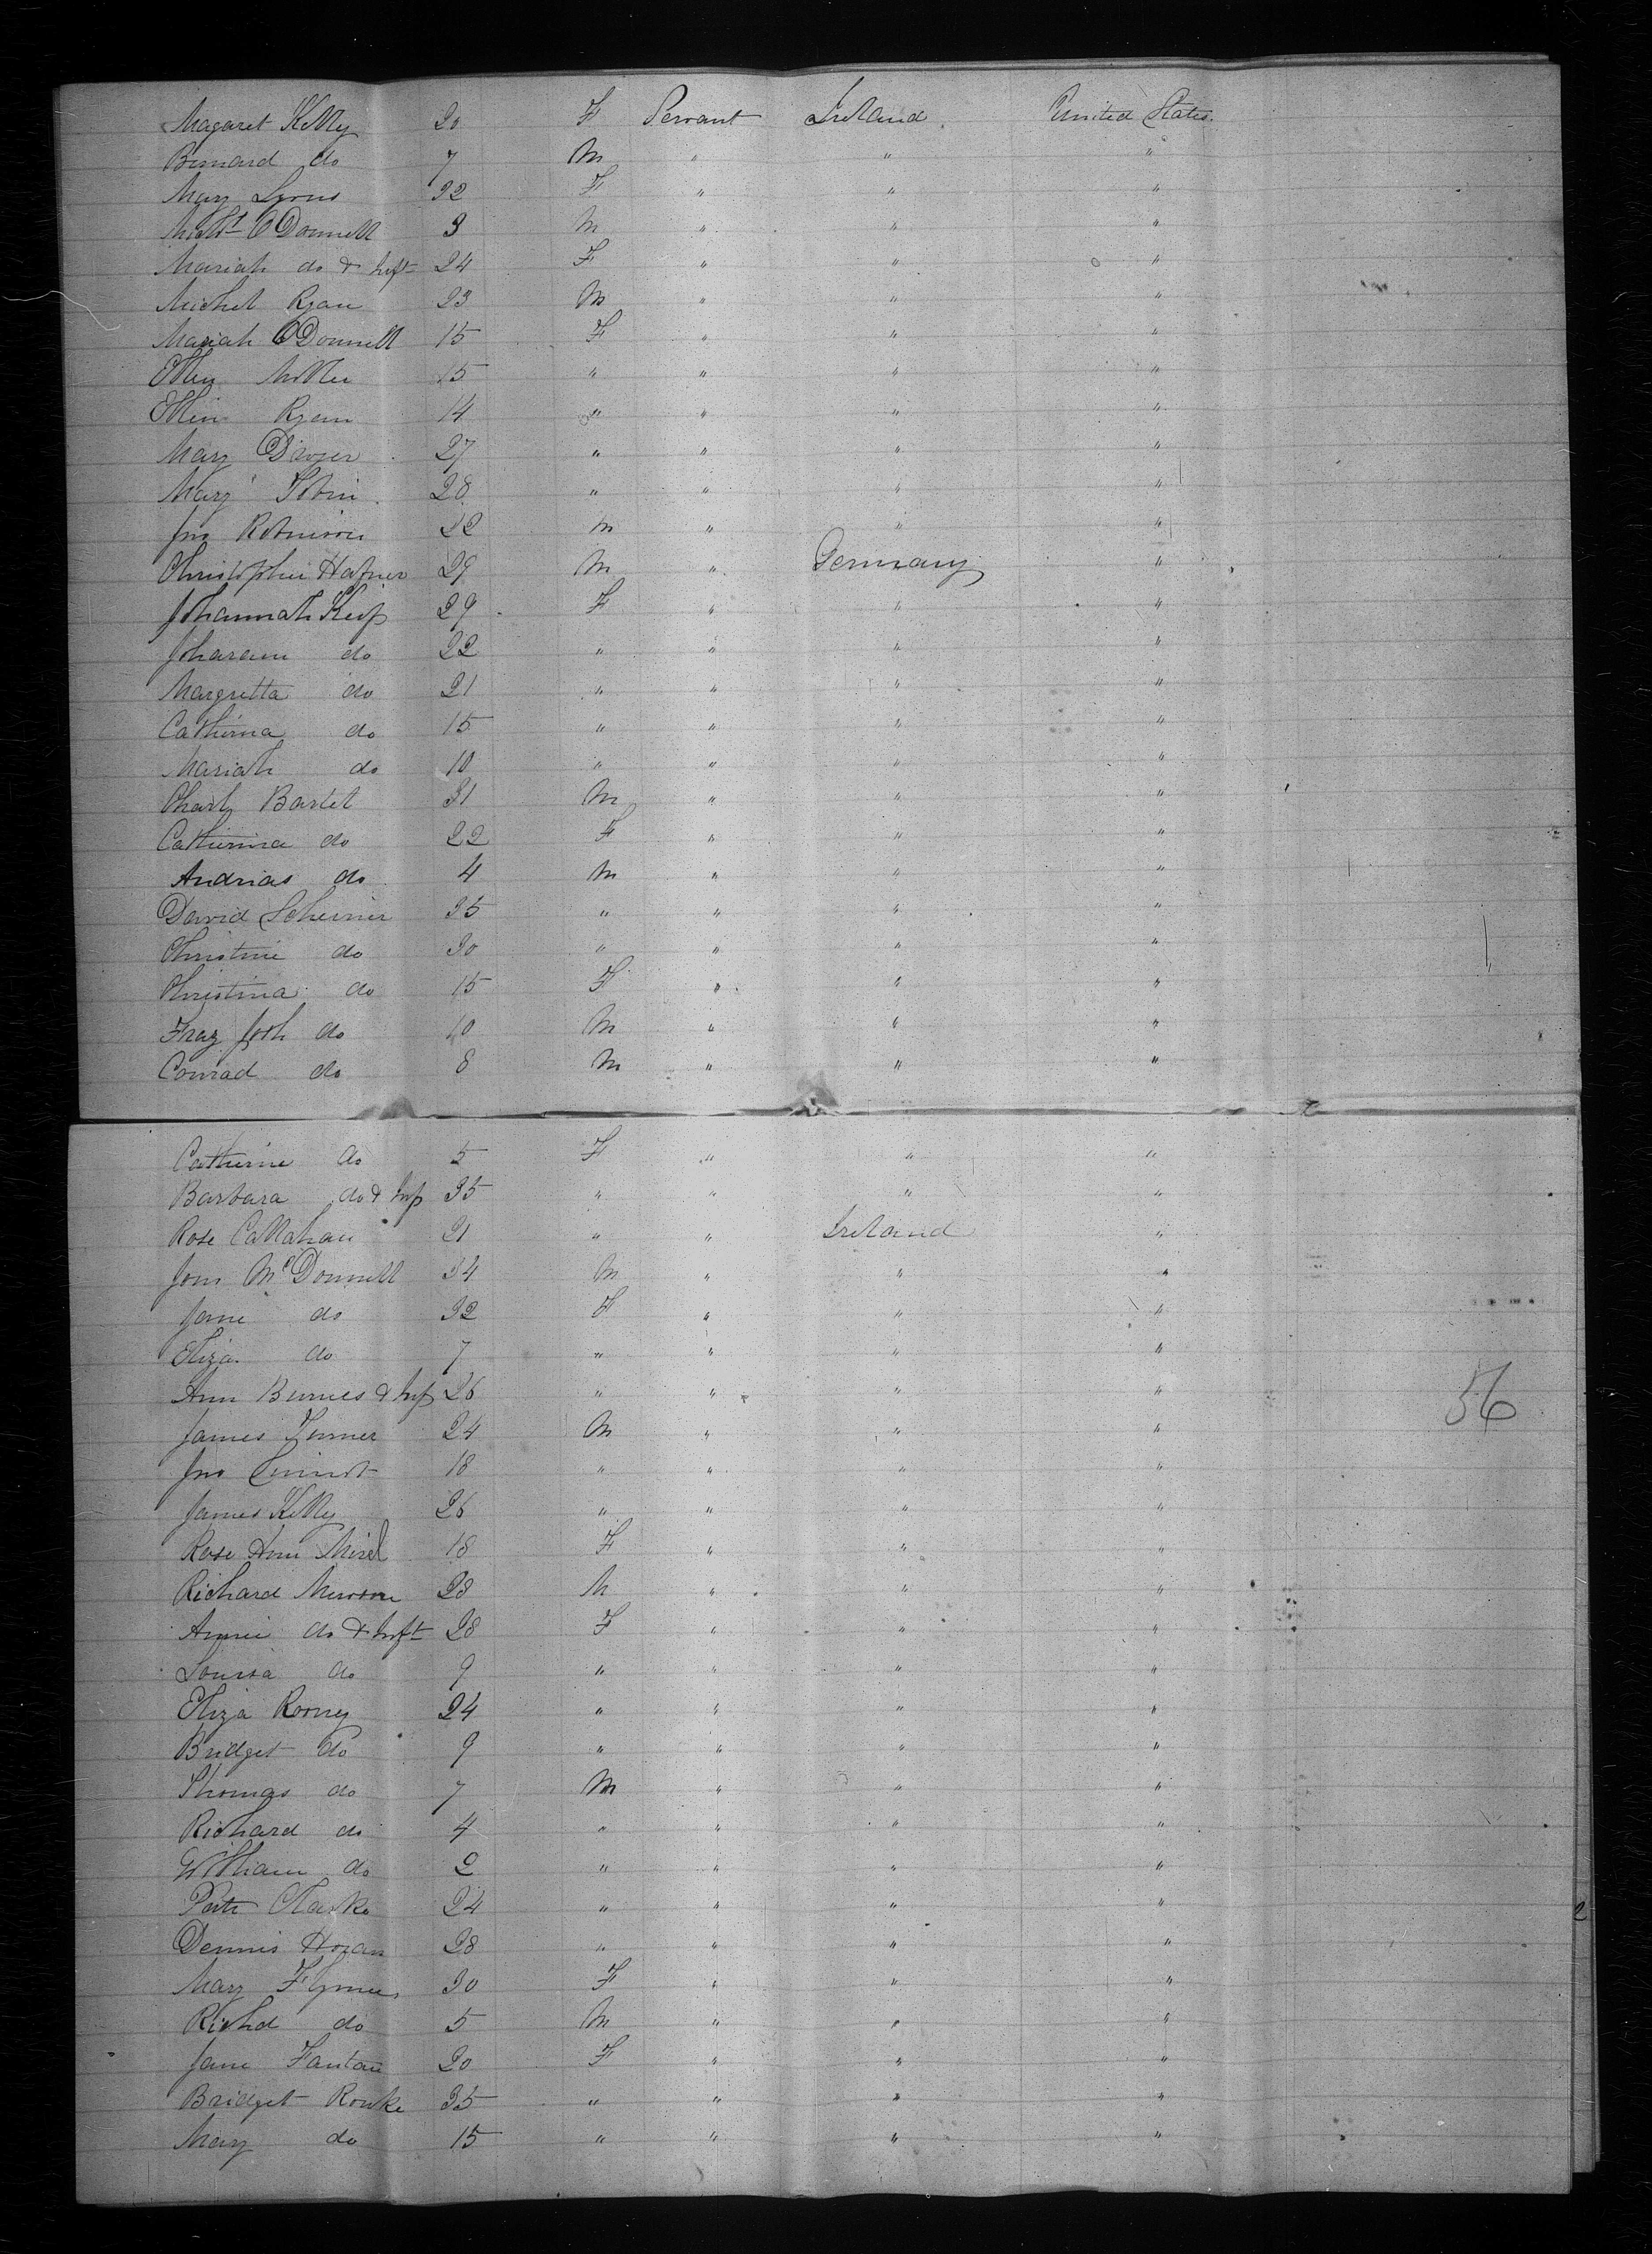 Magaret Kelly 20 F Servant Ireland United States.
Bernard do 7 M " " "
Mary Lyons 32 F " " "
O'Donnell 3 M " " "
Mariah do & Inft 24 F " " "
Michel Ryan 23 M " " "
Mariah O'Donnell 15 F " " "
Ellen Miller 15 " " " "
Ellen Ryan 14 " " " "
Mary Dwyer 27 " " " "
Mary Tobin 28 " " " "
Jno Robinson 22 M " " "
Christopher Hafner 29 M " Germany "
Johannah 29 F " " "
do 22 " " " "
Margretta do 21 " " " "
Catherina do 15 " " " "
Mariah do 10 " " " "
Charls Bartel 31 M " " "
Catherina do 22 F " " "
Andrias do 4 M " " "
David 35 " " " "
Christine do 30 " " " "
Christina do 15 F " " "
do 10 M " " "
Conrad do 8 M " " "
Catherine do 5 F " " "
Barbara do & Inf 35 " " " "
Rose Callahan 21 " " Ireland "
Jom McDonnell 34 M " " "
Jane do 32 F " " "
Eliza do 7 " " " "
Ann Burnes & Inf 26 " " " "
James 24 M " " "
Jno 18 " " " "
James Kelly 26 " " " "
Rose Ann 18 F " " "
Richard 28 M " " "
Annie do & Inft 28 F " " "
Louisa do 9 " " " "
Eliza Rooney 24 " " " "
Bridget do 9 " " " "
Thomas do 7 M " " "
Richard do 4 " " " "
William do 2 " " " "
Patk Clarke 24 " " " "
Dennis Horan 28 " " " "
Mary 30 F " " "
Richd do 5 M " " "
Jane 20 F " " "
Bridget Rourke 35 " " " "
Mary do 15 " " " "
56